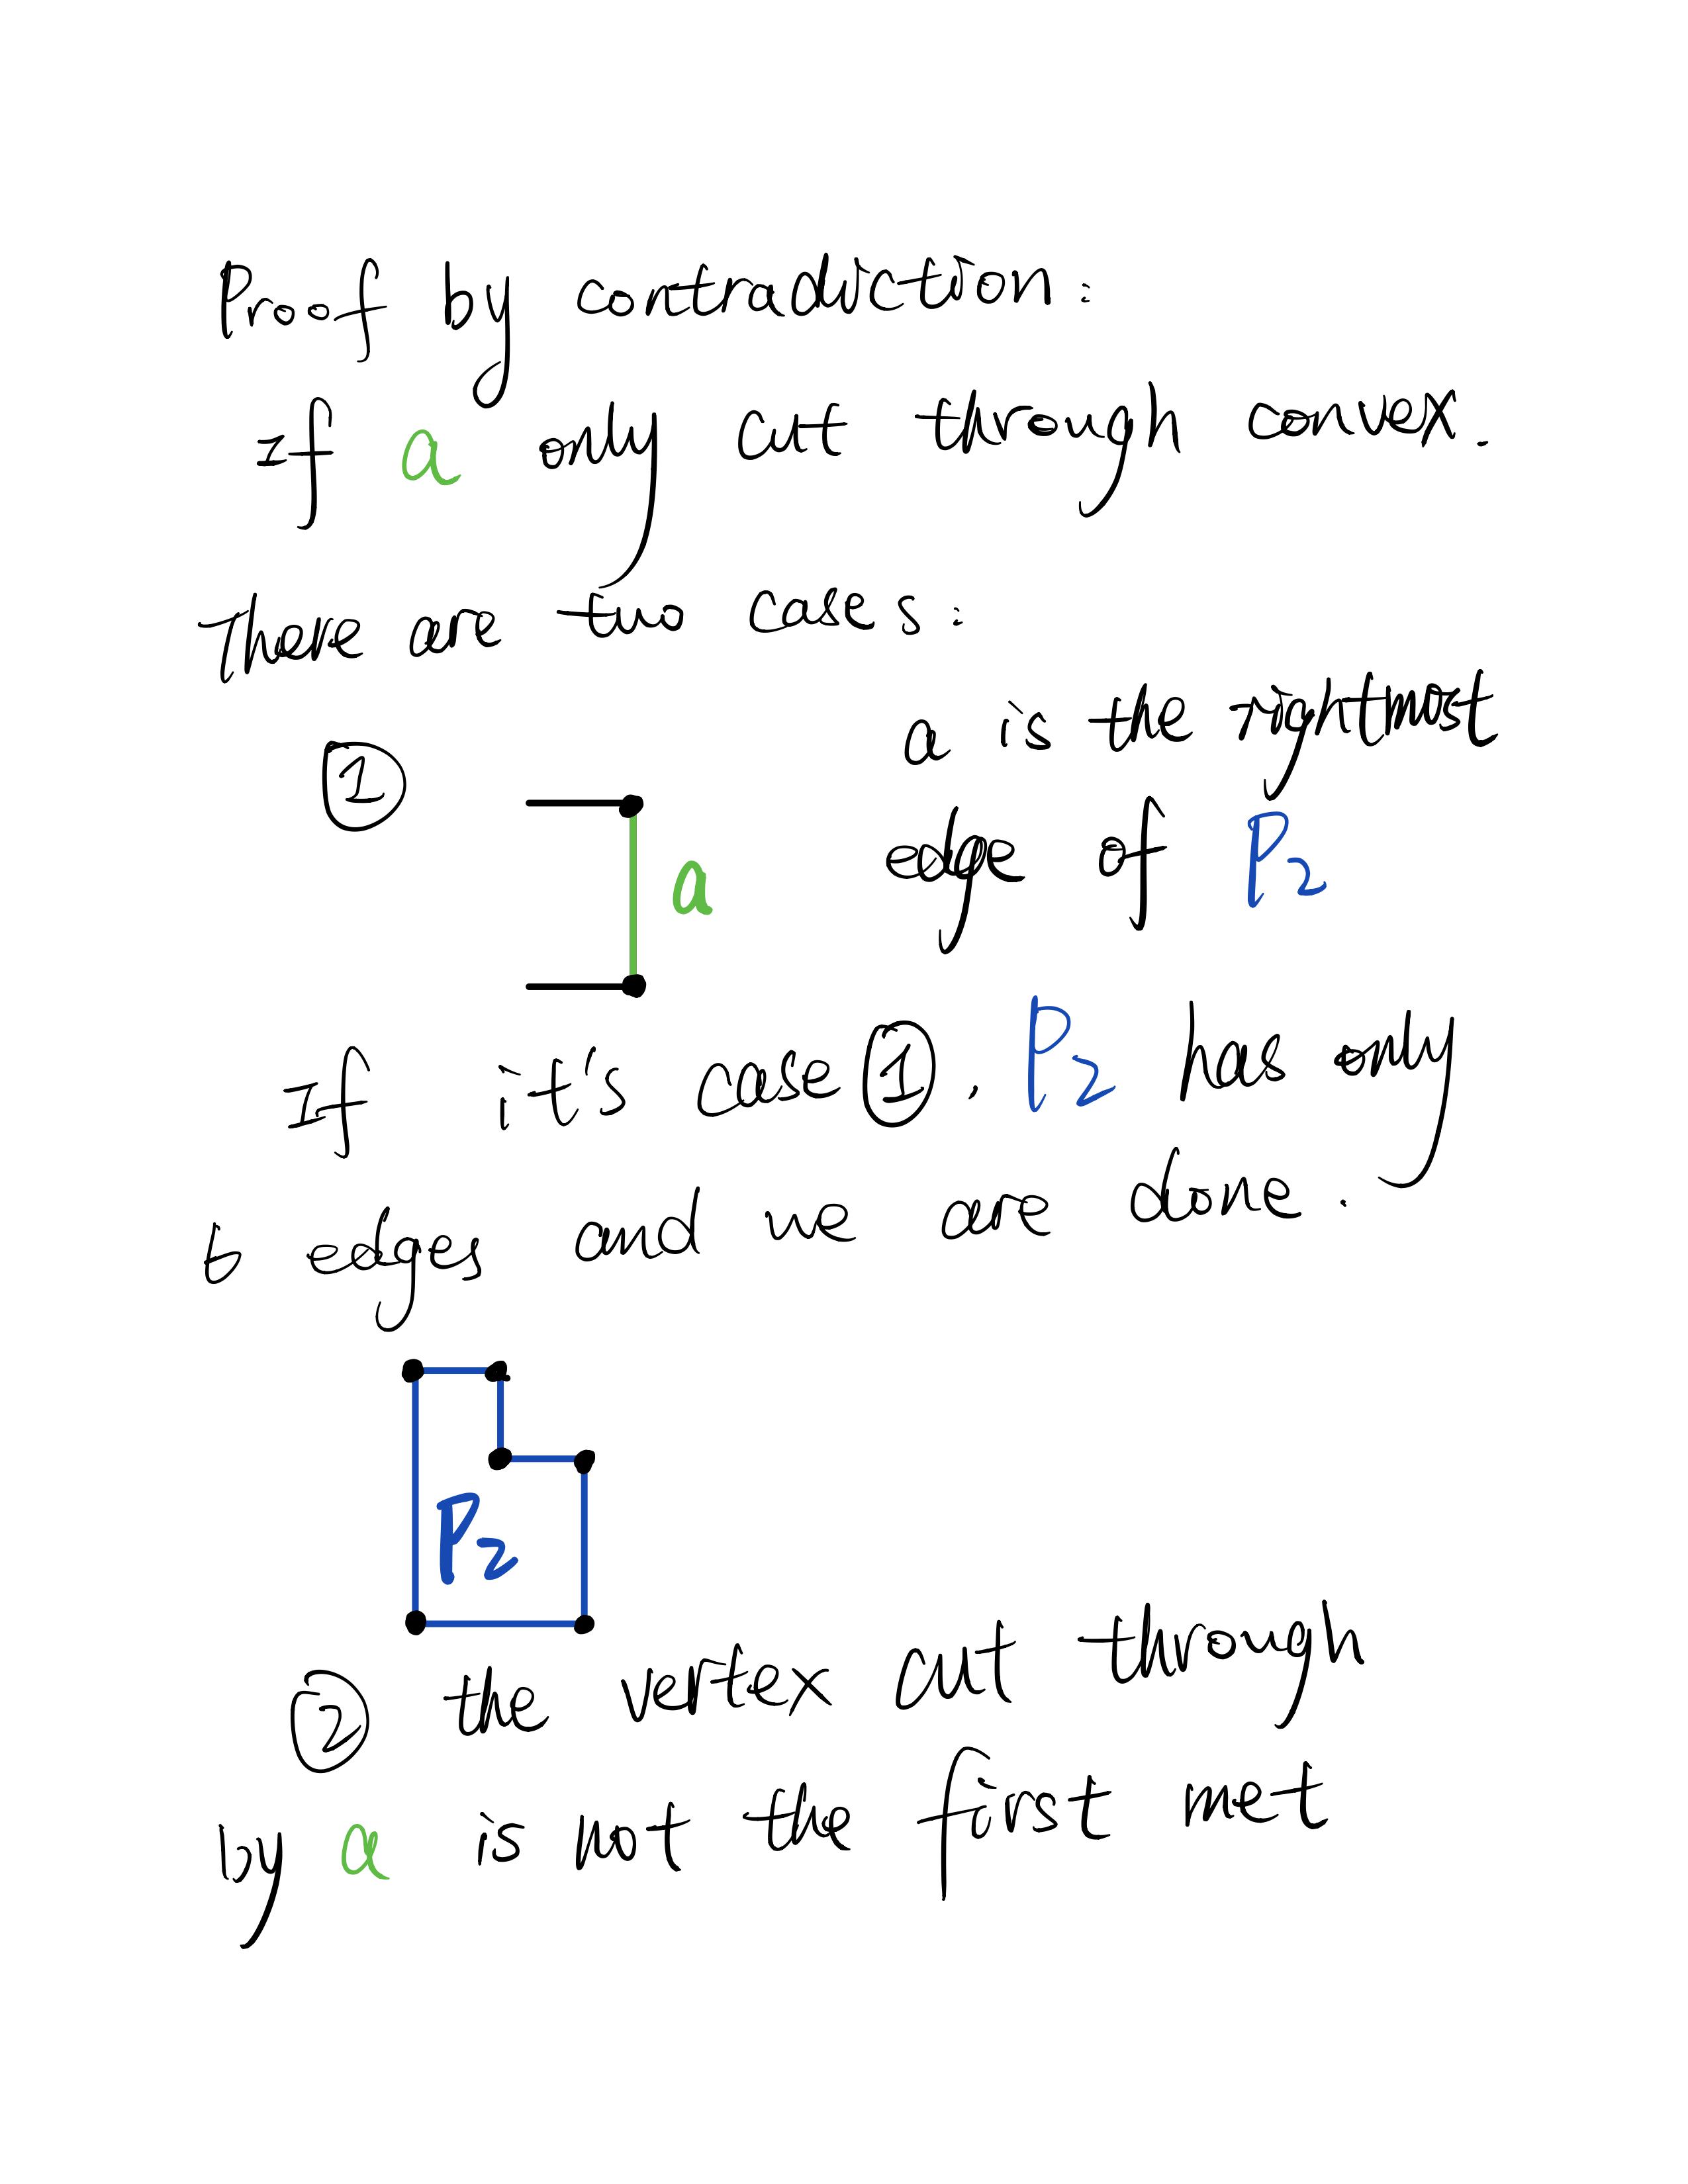 Proof by contradiction:
If a only cut through convex.
There are two cases:
① a is the rightmost
a
edge of P2
If it's case ①, P2 has only
6 edges and we are done.
P2
② the vertex cut through
by a is not the first met